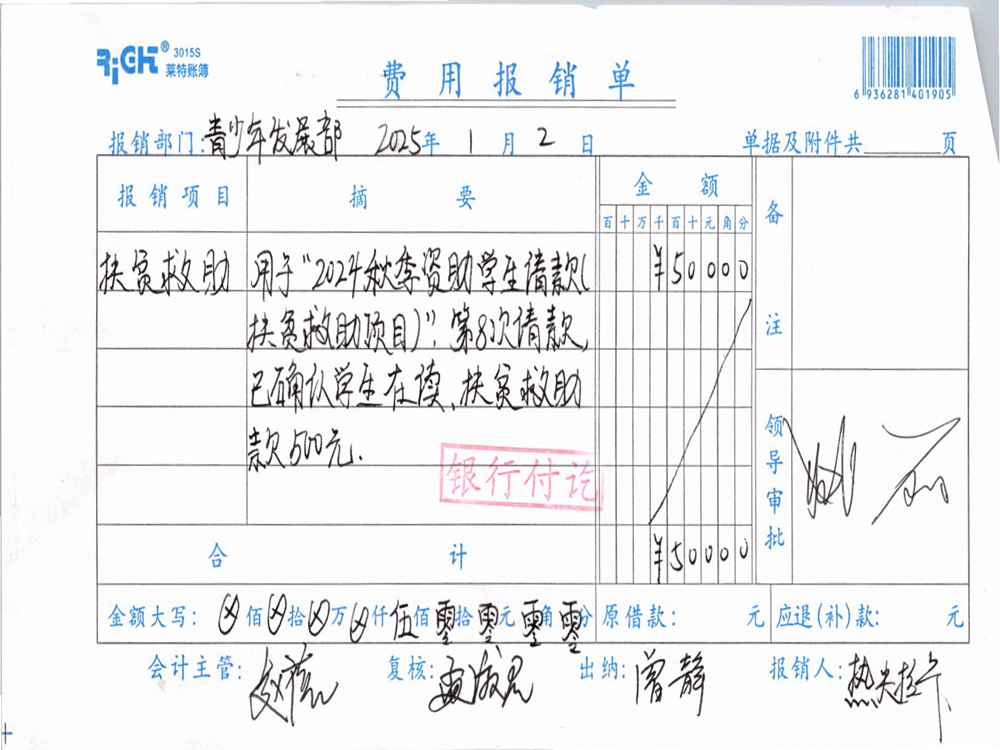 RiGHT® 3015S
莱特账簿
费用报销单
6 936281 401905
报销部门:青少年发展部 2025年 1 月 2 日 单据及附件共 页
报销项目 摘要 金额 备注
百 十 万 千 百 十 元 角 分
扶贫救助 用于"2024秋季资助学生请款( ¥50000
扶贫救助项目)",第8次请款,
已确认学生在读、扶贫救助
款500元.
银行付讫
领导审批
合计 ¥50000
金额大写: ⊗佰⊗拾⊗万⊗仟伍佰零拾零元零角零分 原借款: 元 应退(补)款: 元
会计主管: 复核: 出纳:曾静 报销人: